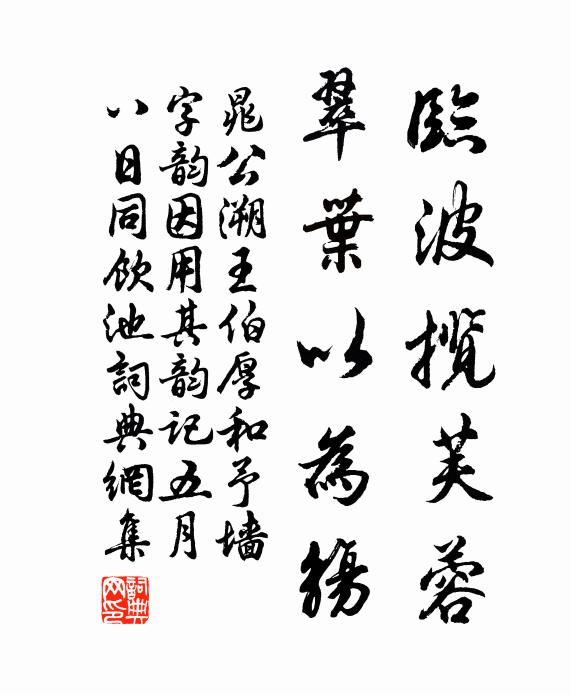 臨波攬芙蓉
翠葉以為觴
晁公溯王伯厚和予墻
字韵因用其韵記五月
八日同飲池詞典網集
詞典網印